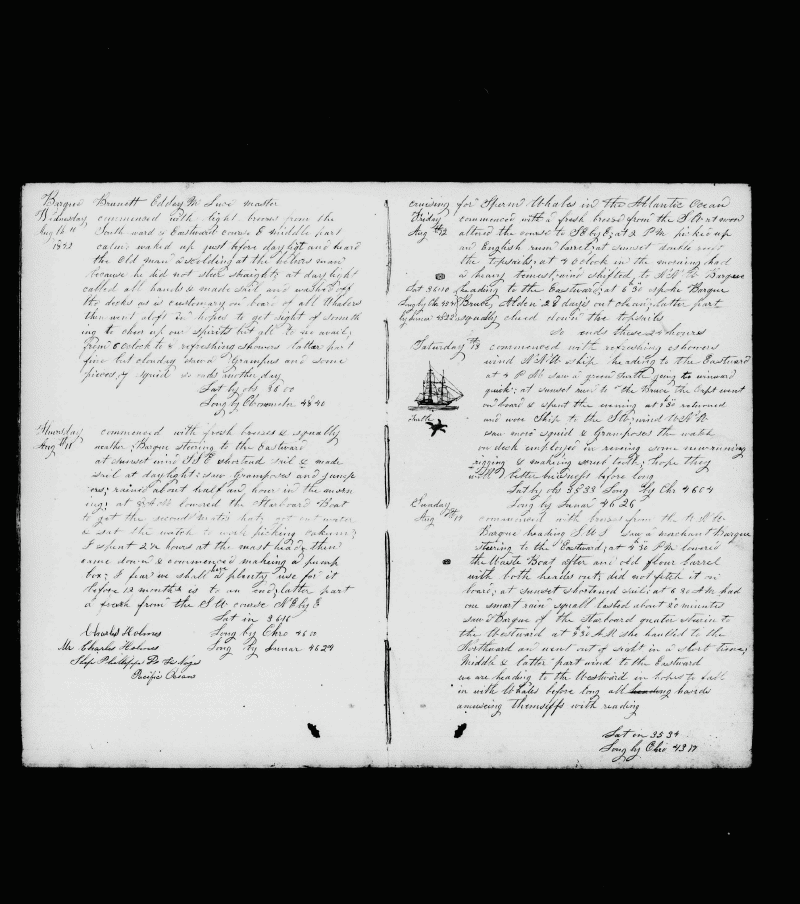 Barque Brunett Edday Mc Lure master
Wednesday commenced with light breeses from the
Aug 10th South ward & Eastward course E middle part
calm; waked up just before daylight and heard
the Old man a scolding at the helms man
because he did not steer straight; at daylight
called all hands & made sail and washed off
the decks as is customary on board of all Whalers
then went aloft in hopes to get sight of someth
ing to cheer up our spirits but all to no avail;
from 6 Oclock to 8 refreshing showers latter part
fine but cloudy saw Grampus and some
pieces of squid so ends another day
Lat by obs 36 00
Long by Chronometer
Thursday commenced with fresh breeses & squally
Aug 11th weather; Barque stering to the Eastward
at sunset wind shortend sail & made
sail at daylight; saw Grampuses and jump
ers; rained about half an hour in the morn
ing; at lowered the Starboard Boat
to get the second mates hat; got out water
& set the watch to work picking oakum;
I spent 2 hours at the mast head then
came down & commenced making a pump
box; I fear we shall have plenty use for it
before 12 months is to an end; latter part
a fresh from the S.W course
Lat in 36
Charles Holmes Long by Chro
Mr Charles Holmes Long by Lunar 46 24
Ship Phillippe
Pacific Ocean
cruising for Sperm Whales in the Atlantic Ocean
Friday commenced with a fresh breese from the S.W at noon
Aug 12th altered the course to SE by E; at 2 PM picked up
and English rum barrel; at sunset double reeft
the topsails; at 4 Oclock in the morning had
a heavy tempest; wind shifted to Barque
Lat 36 10 heading to the Eastward; at 6 30 spoke Barque
Long by Chr Bruce, Alden 28 days out clean; latter part
by Lunar squally clued down the topsails
So ends these 24 hours
Saturday 13 commenced with refreshing showers
wind ship heading to the Eastward
at 4 P.M. saw a green Turtle going to winward
quick; at sunset run to the Bruce the Capt went
on board & spent the evening at 8 30 returned
Turtle and wore Ship to the SW; wind
saw more squid & Grampuses the watch
on deck employed in reeving some new running
rigging & making scrub broth; hope they
will better business before long
Lat by obs 35 33 Long by Chr 46 04
Long by Lunar 46 26
Sunday commenced with breese from the
Aug 14th Barque heading saw a merchant Barque
stering to the Eastward; at 4 30 P.M lowered
the Waste Boat after and old flour barrel
with both heads out; did not fetch it on
board; at sunset shortened sail; at 6 30 A.M had
one smart rain squall lasted about 20 minutes
saw a Barque of the Starboard quater sterein to
the Westward at 8 30 A.M she hauled to the
Northward an went out of sight in a short time;
Middle & latter part wind to the Eastward
we are heading to the Westward in hopes to fall
in with Whales before long all hands
amuseing themselfs with reading
Lat in 35 34
Long by Chro 43 17